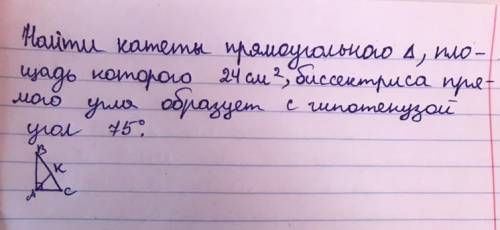 Найти катеты прямоугольного Δ, пло-
щадь которого 24 см², биссектриса пря-
мого угла образует с гипотенузой
угол 75°.
B
K
A
C